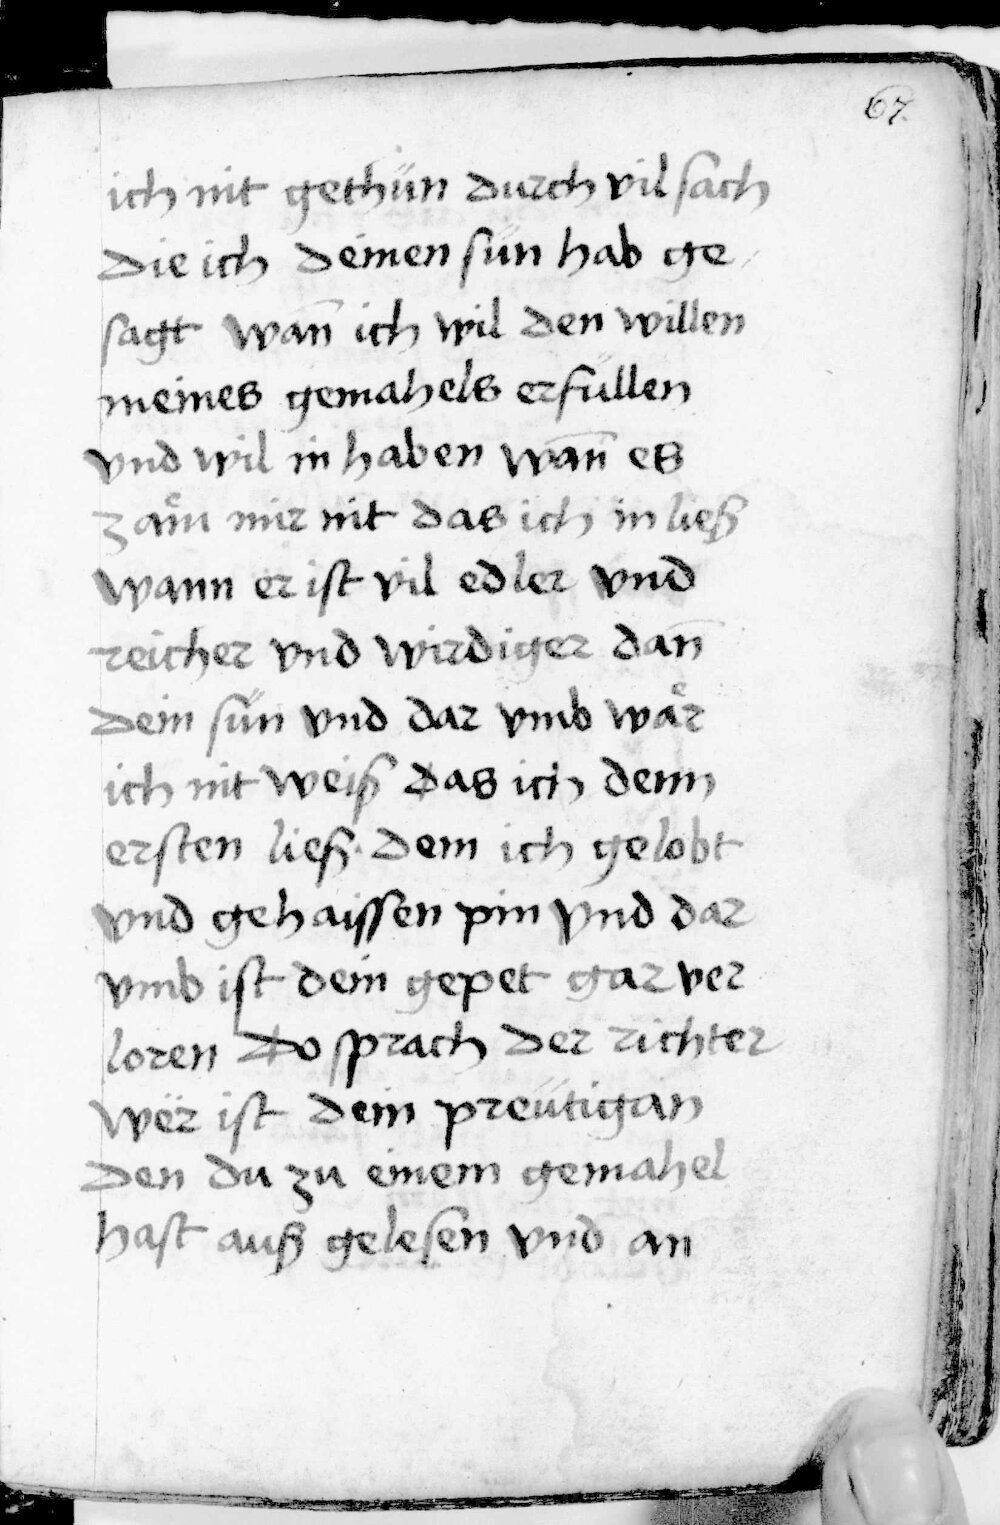 67.
ich nit gethün durch vil sach
die ich deinen sün hab ge
sagt wan̄ ich wil den willen
meines gemahels erfüllen
vnd wil in haben wan̄ es
zaͤm mir nit das ich in ließ
wann er ist vil edler vnd
reicher vnd wirdiger dan̄
dein sün vnd dar vmb waͤr
ich nit weiß das ich denn
ersten ließ. dem ich gelobt
vnd gehaissen pin vnd dar
vmb ist dein gepet gar ver
loren Do sprach der richter
wër ist dein preütigan
den du zu einem gemahel
hast auß gelesen vnd an